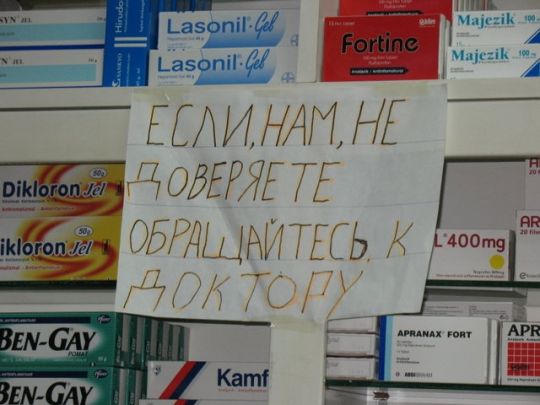 Lasonil® Gel
Lasonil® Gel
Fortine
Majezik 100 mg
Majezik 100 mg
ЕСЛИ, НАМ, НЕ
ДОВЕРЯЕТЕ
ОБРАЩАЙТЕСЬ, К
ДОКТОРУ
50g
Dikloron Jel
50g
ikloron Jel
L® 400 mg
BEN-GAY
POMAT
BEN-GAY
Kamf
APRANAX® FORT
APR